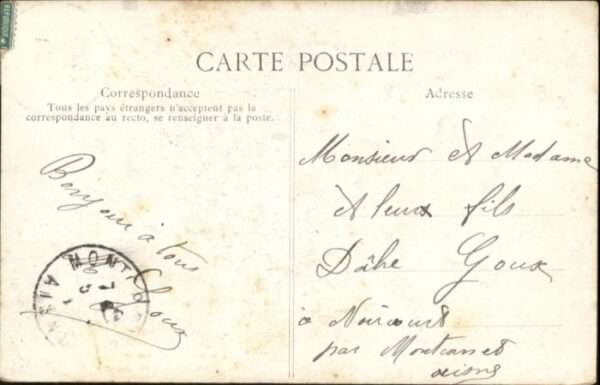 CARTE POSTALE
Correspondance
Tous les pays étrangers n'acceptent pas la
correspondance au recto, se renseigner à la poste.
Adresse
Bonjour à tous
Goux
Monsieur & Madame
& leux fils
Dâhe Goux
à Noircourt
par Montcornet
aisne
MONTC
AIS